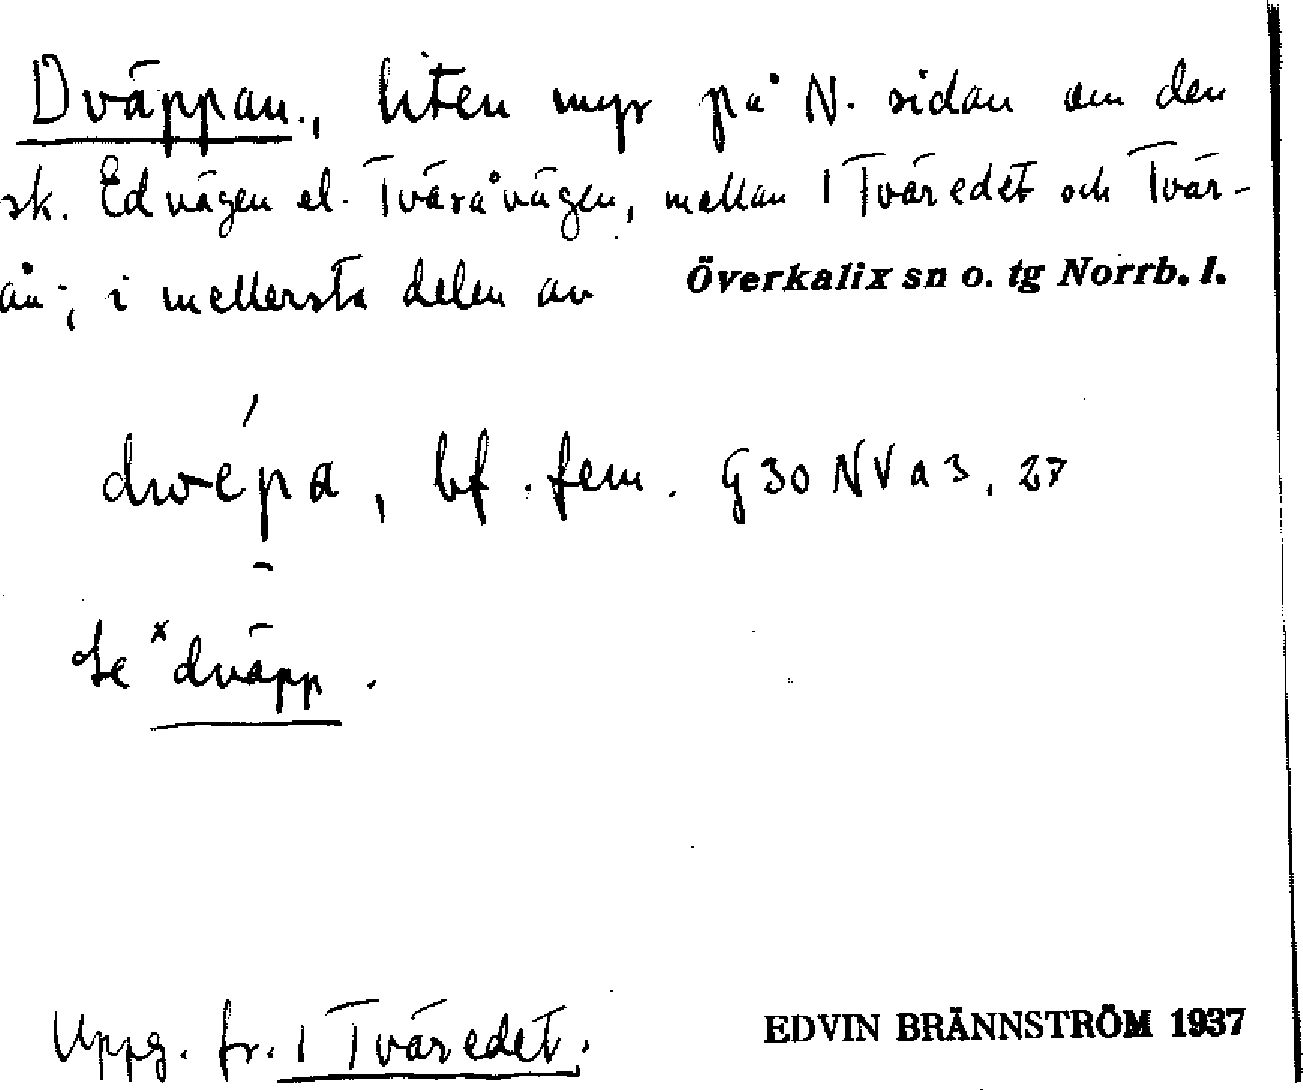 Dväppan., liten myr på N. sidan om den
sk. Edvägen el. Tväråvägen, mellan 1 Tväredet och Tvär-
ån; i mellersta delen av Överkalix sn o. tg Norrb. l.
dwépa, bf. fem. G30NVa3, 27
Se ˣdväpp.
Uppg. fr. 1 Tväredet. EDVIN BRÄNNSTRÖM 1937